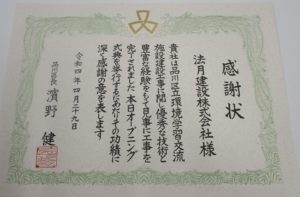 感謝状
法月建設株式会社様
貴社は品川区立環境学習交流
施設建設工事に関し優秀な技術と
豊富な経験をもって見事に工事を
完了されました 本日オープニング
式典を挙行するにあたりその功績に
深く感謝の意を表します
令和四年四月二十九日
品川区長 濱野 健